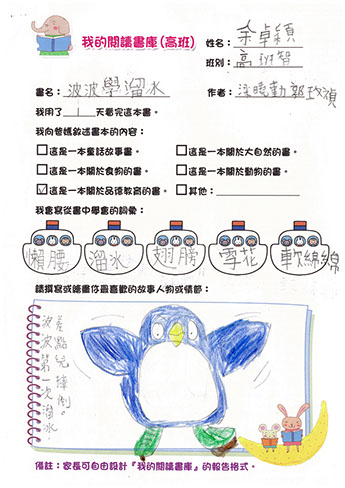 我的閱讀書庫(高班)
姓名：余卓穎
班別：高班智
書名：波波學溜水
作者：
我用了 1 天看完這本書。
我向爸媽敘述書本的內容：
□這是一本童話故事書。 □這是一本關於大自然的書。
□這是一本關於食物的書。 □這是一本關於動物的書。
☑這是一本關於品德教育的書。 □其他：
我會寫從書中學會的詞彙：
懶腰 溜冰 翅膀 雪花 軟綿綿
請撰寫或繪畫你最喜歡的故事人物或情節：
波波第一次溜冰，
差點兒摔倒。
備註：家長可自由設計『我的閱讀書庫』的報告格式。